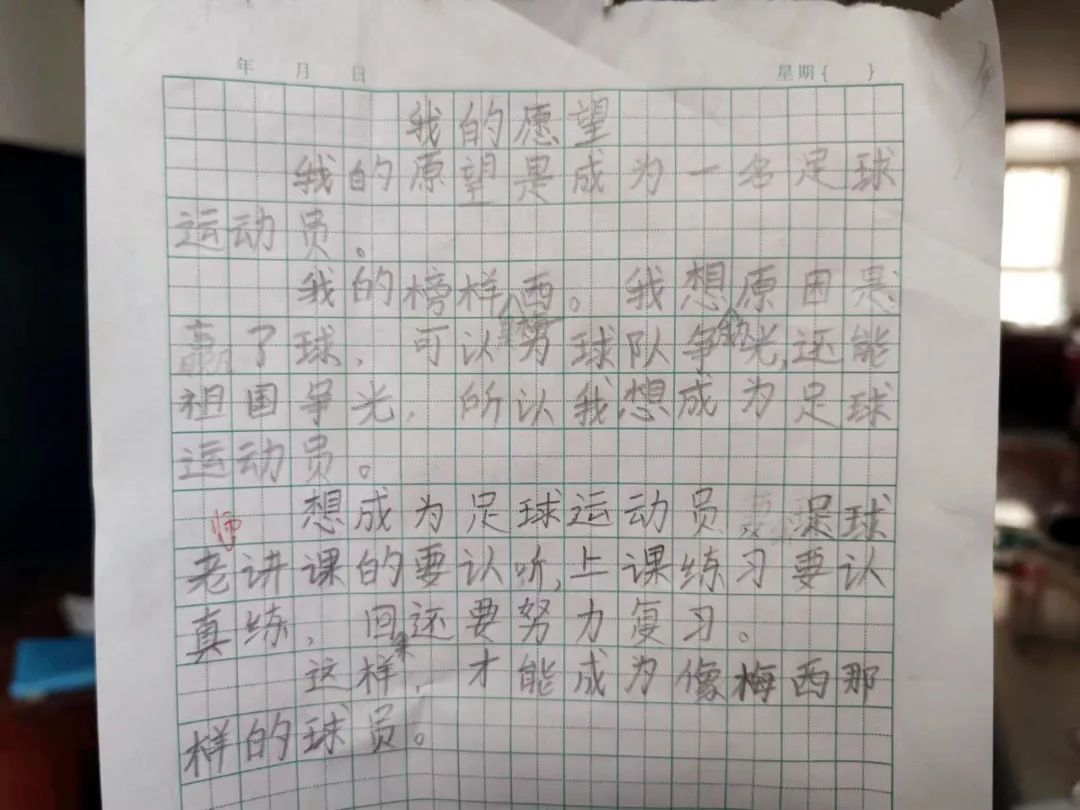 年 月 日 星期{ }
我的愿望
我的原望是成为一名足球
运动员。
我的榜样西。我想原因是
赢了球，可认为球队争光，还能
祖国争光，所认我想成为足球
运动员。
想成为足球运动员，足球
师
老讲课的要认听，上课练习要认
真练，回来还要努力复习。
这样，才能成为像梅西那
样的球员。